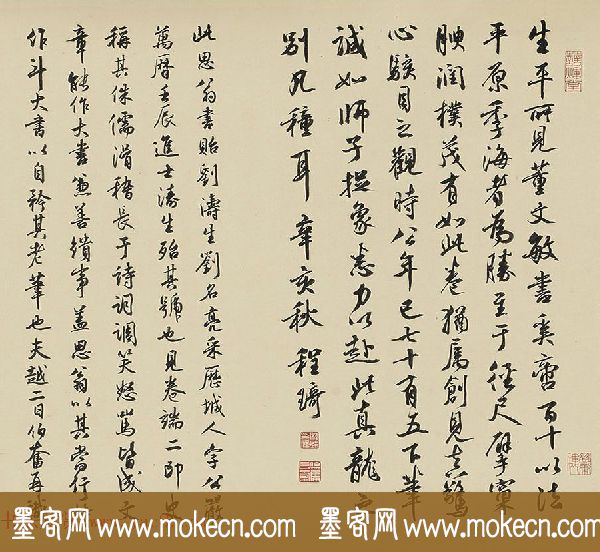 生平所見董文敏書奚啻百十以法
平原季海者為勝至于徑尺擘窠
腴潤樸茂有如此卷猶屬創見真驚
心駭目之觀時公年已七十有五下筆
誠如師子捉象力以赴此真龍
別凡種耳辛亥秋程琦
此思翁書貽劉濤生劉名亮采歷城人字公嚴
萬曆壬辰進士濤生殆其號也見卷端二印史
稱其侏儒滑稽長于詩詞調笑怒罵皆成文
章能作大書兼善繢事蓋思翁以其當行
作斗大書以自矜其老筆也夫越二日伯奮再識
墨客网 www.mokecn.com 墨客网 www.mokecn.com 墨客网